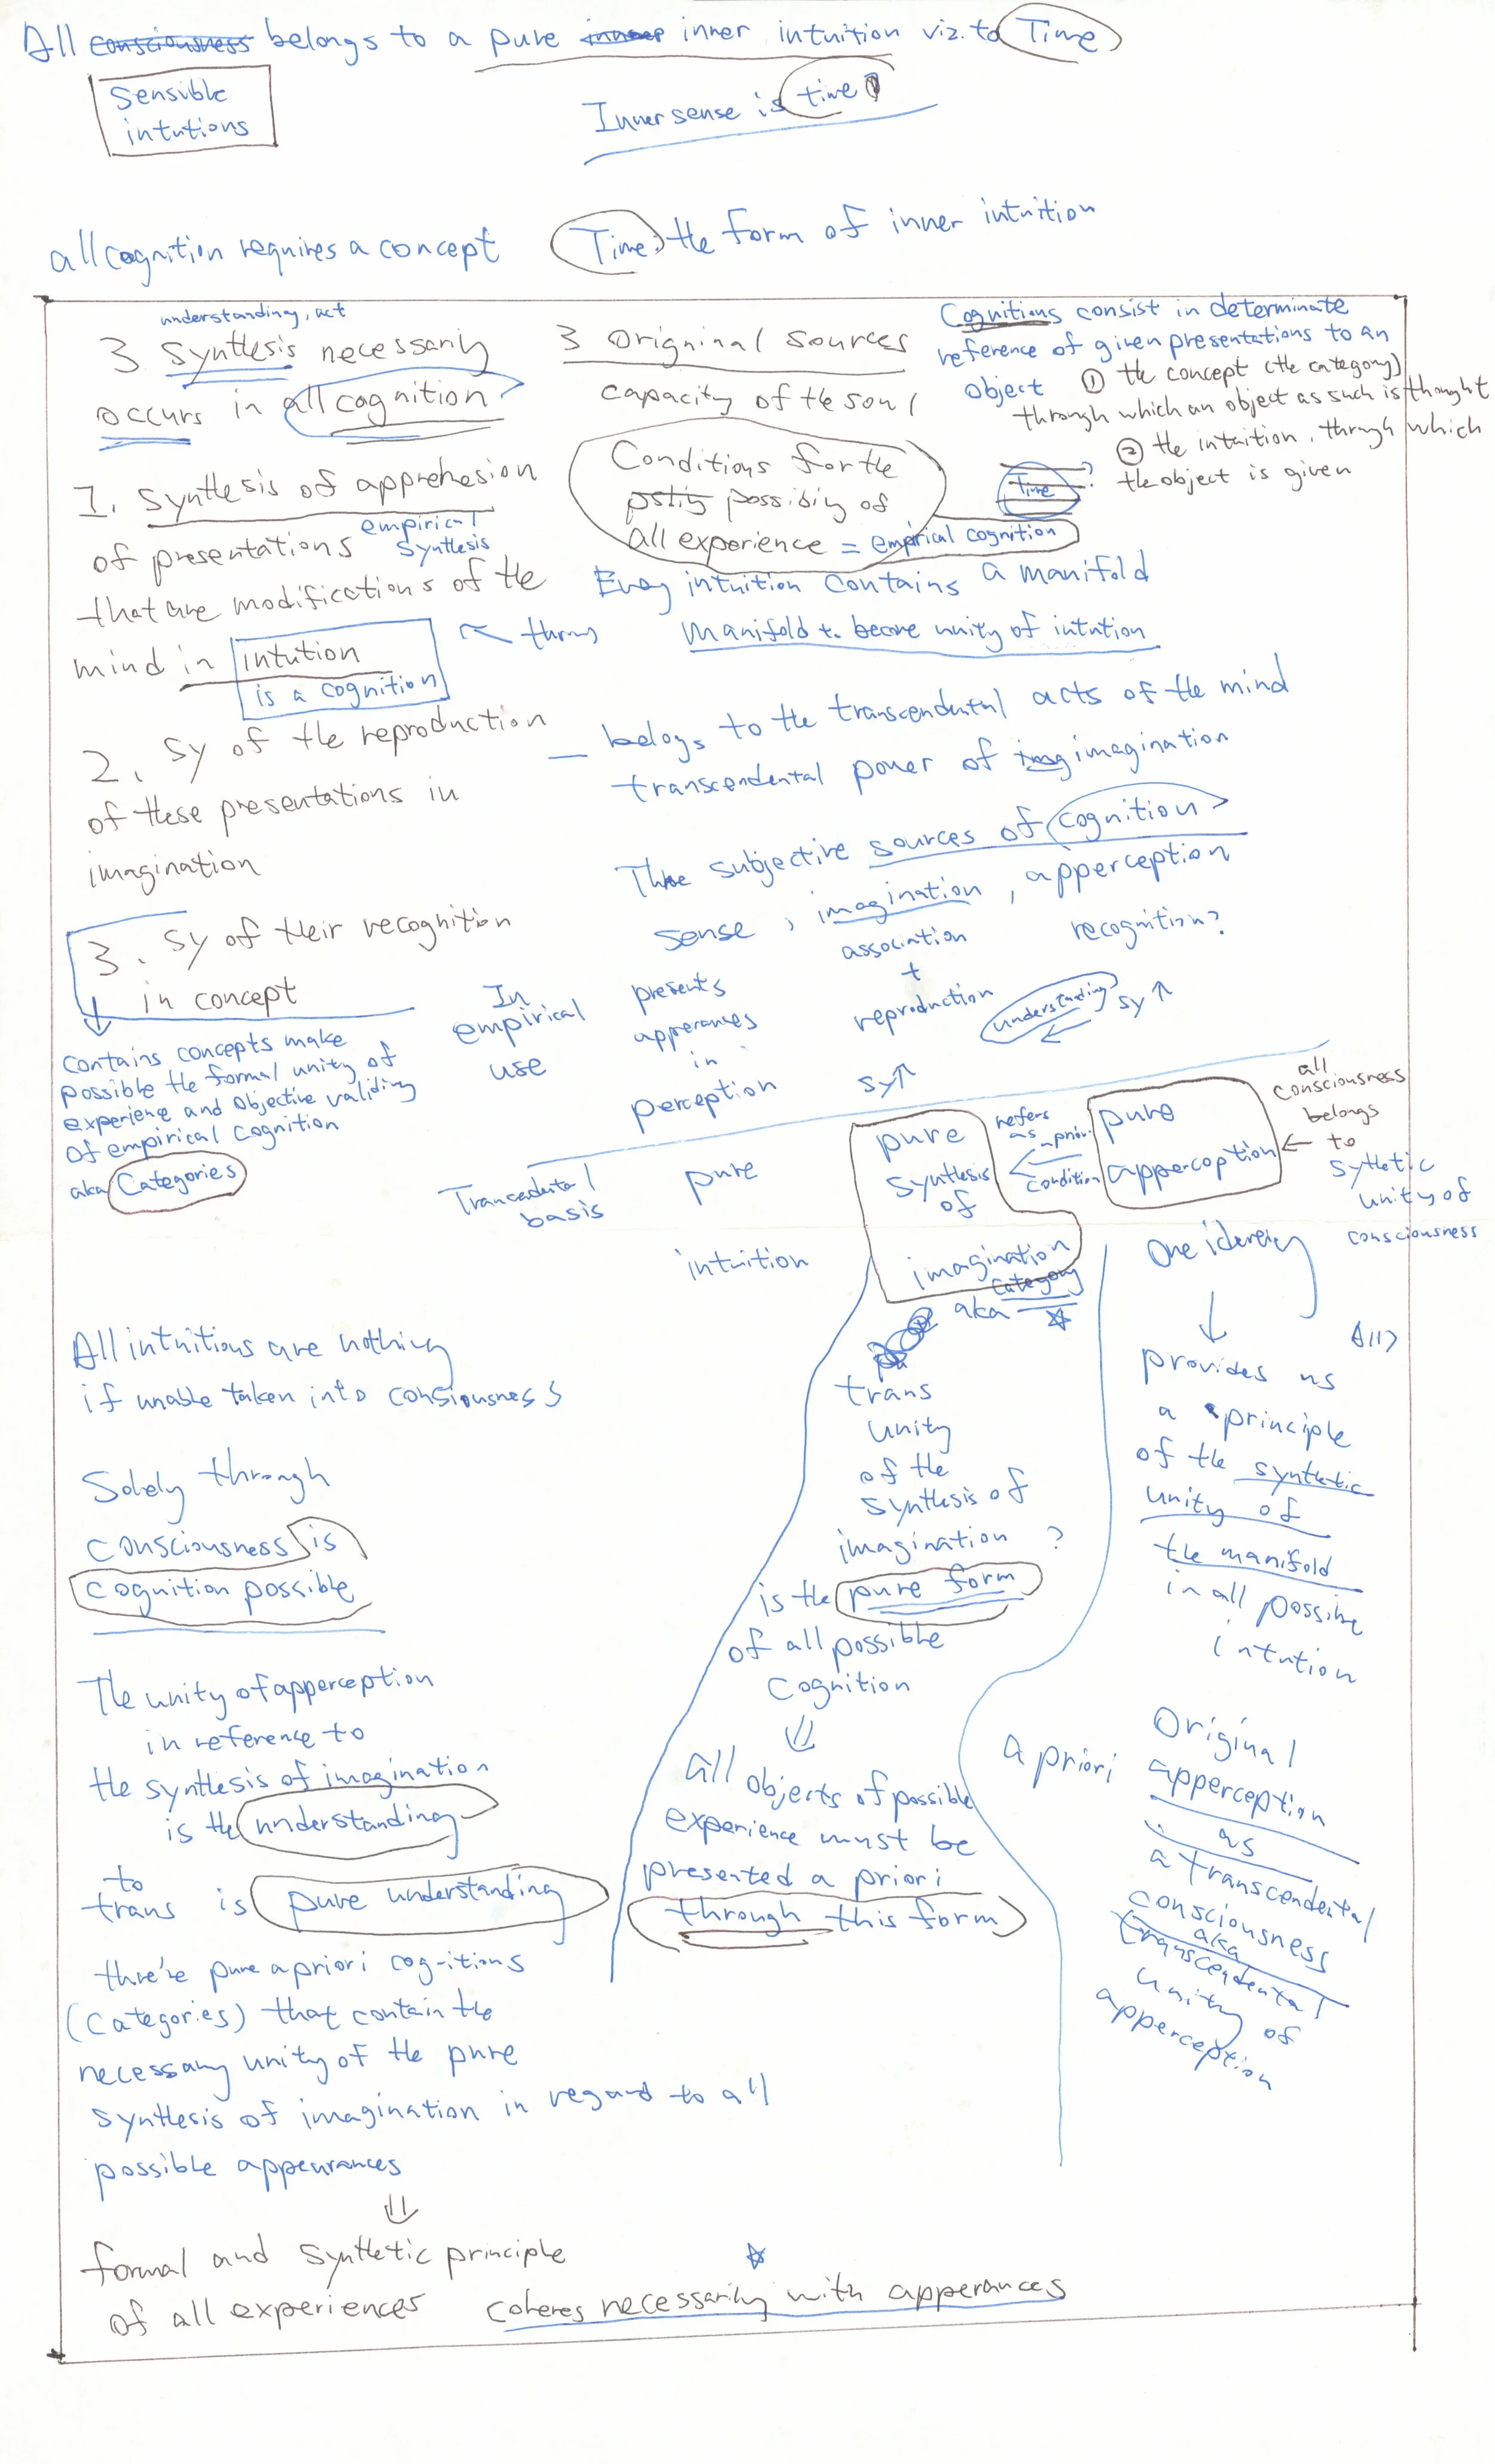 All consciousness belongs to a pure inner inner intuition viz. to Time
Sensible
intutions
Inner sense is time
all cognition requires a concept
Time: the form of inner intuition
understanding, act
3 Synthesis necessarily
occurs in all cognition
1. Synthesis of apprehesion
of presentations
empirical
synthesis
that are modifications of the
mind in intution
is a cognition
2. Sy of the reproduction
of these presentations in
imagination
3. Sy of their recognition
in concept
contains concepts make
possible the formal unity of
experience and objective validity
of empirical cognition
aka Categories
3 Originial sources
capacity of the soul
Conditions for the
possibiy of
all experience = emprical cognition
Cognitions consist in determinate
reference of given presentations to an
object
① the concept (the category)
through which an object as such is thought
② the intuition, through which
the object is given
Time ?
Every intuition contains a manifold
manifold to become unity of intution
belogs to the transcendental acts of the mind
transcendental power of img imagination
Three subjective sources of cognition
sense, imagination, apperception
association
+
reproduction
recognition?
understanding
sy ↑
In
empirical
use
presents
apperances
in
perception
sy↑
Trancendental
basis
pure
intuition
pure
synthesis
of
imagination
category
aka
refers
as a priori
condition
pure
apperception
all
consciousness
belongs
to
sythetic
unity of
consciousness
One
A117
provides us
a principle
of the synthetic
unity of
the manifold
in all possible
intution
trans
unity
of the
synthesis of
imagination ?
is the pure form
of all possible
cognition
⇓
all objects of possible
experience must be
presented a priori
through this form
a priori
Original
apperception
as
a transcendental
consciousness
aka
transcendental
unity of
apperception
All intuitions are nothing
if unable taken into consiousness
Solely through
consciousness is
cognition possible
The unity of apperception
in reference to
the synthesis of imagination
is the understanding
to
trans is pure understanding
there're pure a priori cognitions
(categories) that contain the
necessary unity of the pure
synthesis of imagination in regard to all
possible appearances
⇓
formal and synthetic principle
of all experiences coheres necessarily with apperances